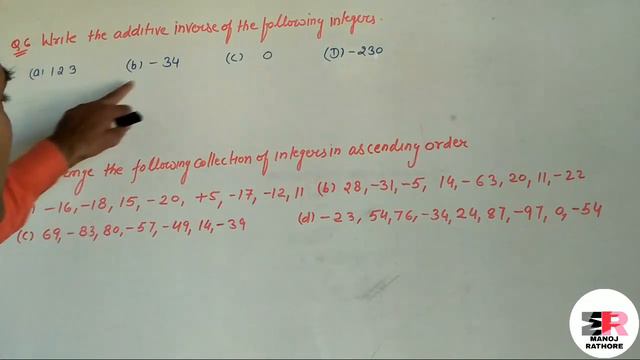 Q.6 Write the additive inverse of the following integers.
(a) 123 (b) - 34 (c) 0 (D) - 230
the following collection of integers in ascending order
-16, -18, 15, -20, +5, -17, -12, 11 (b) 28, -31, -5, 14, -63, 20, 11, -22
(c) 69, -83, 80, -57, -49, 14, -39 (d) -23, 54, 76, -34, 24, 87, -97, 0, -54
MANOJ
RATHORE